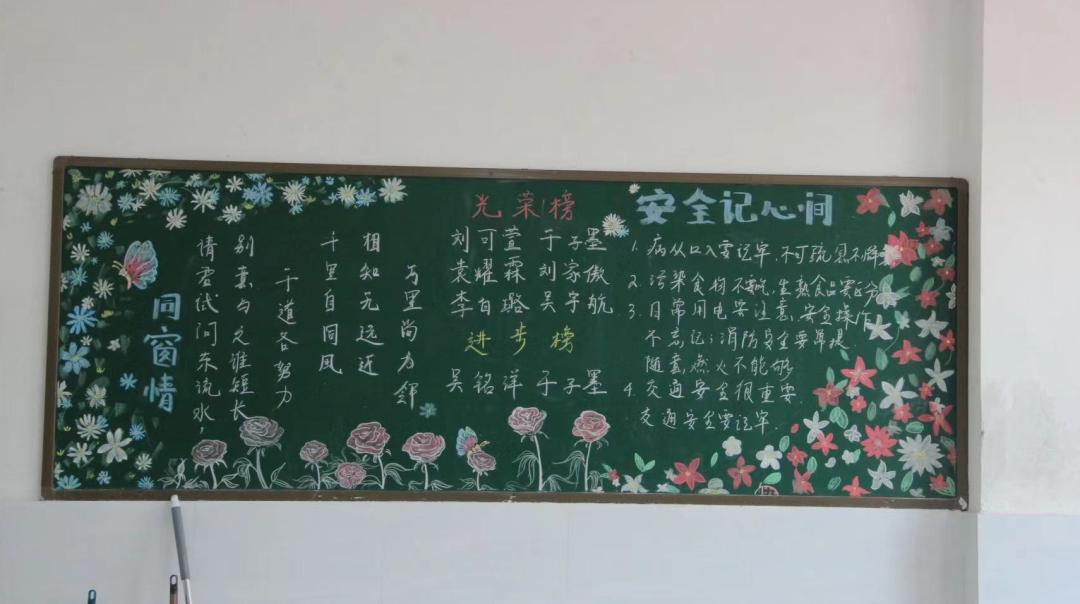 同窗情
请君试问东流水，
别意与之谁短长
于道各努力
千里自同风
相知无远近
万里尚为邻
光荣榜
刘可萱 于子墨
袁耀霖 刘家傲
李自璐 吴宇航
进步榜
吴铭洋 于子墨
安全记心间
1. 病从口入要记牢 不可疏忽不
2. 污染食物不要吃 生熟食品要区分
3. 日常用电要注意 安全操作
不忘记；消防安全要早提
随意燃火不能够
4. 交通安全很重要
交通安全要记牢.